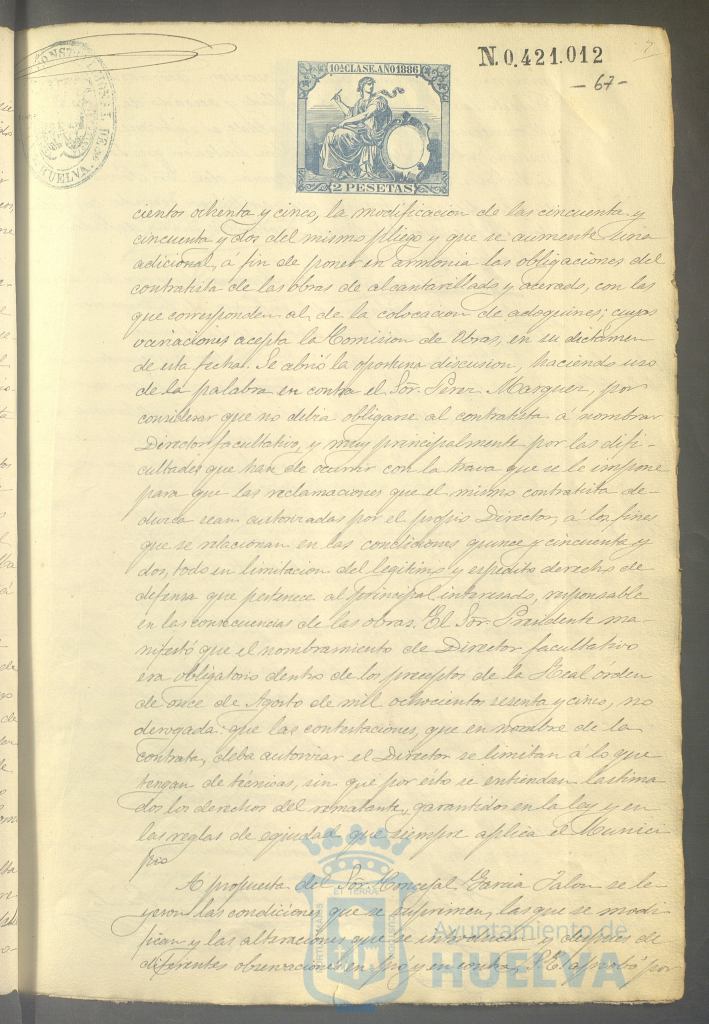 N.0.421.012
10ª CLASE. AÑO 1886
- 67 -
HUELVA.
2 PESETAS
cientos ochenta y cinco, la modificacion de las cincuenta y
cincuenta y dos del mismo pliego y que se aumente una
adicional, á fin de poner en armonia las obligaciones del
contratista de las obras de alcantarillado y acerado, con las
que corresponden al de la colocacion de adoquines; cuyas
variaciones acepta la Comision de Obras, en su dictámen
de esta fecha. Se abrió la oportuna discusion, haciendo uso
de la palabra en contra el Sor. Perez Marquez, por
considerar que no debia obligarse al contratista á nombrar
Director facultativo, y muy principalmente por las difi-
cultades que han de ocurrir con la trava que se le impone
para que las reclamaciones que el mismo contratista de-
duzca sean autorizadas por el propio Director, á los fines
que se relacionan en las condiciones quince y cincuenta y
dos, todo en limitacion del legítimo y espedito derecho de
defensa que pertenece al principal interesado, responsable
en las consecuencias de las obras. El Sor. Presidente ma-
nifestó que el nombramiento de Director facultativo
era obligatorio dentro de los preceptos de la Real órden
de once de Agosto de mil ochocientos sesenta y cinco, no
derogada: que las contestaciones, que en nombre de la
contrata, deba autorizar el Director se limitan á lo que
tengan de técnicas, sin que por esto se entiendan lastima
dos los derechos del rematante, garantidos en la ley y en
las reglas de equidad que siempre aplica el Munici
pio
A propuesta del Sor. Concejal Garcia Jalon se le-
yeron las condiciones que se suprimen, las que se modi
fican y las alteraciones que se introducen y despues de
diferentes observaciones en pró y en contra, S.E. aprobó por
Ayuntamiento de
HUELVA